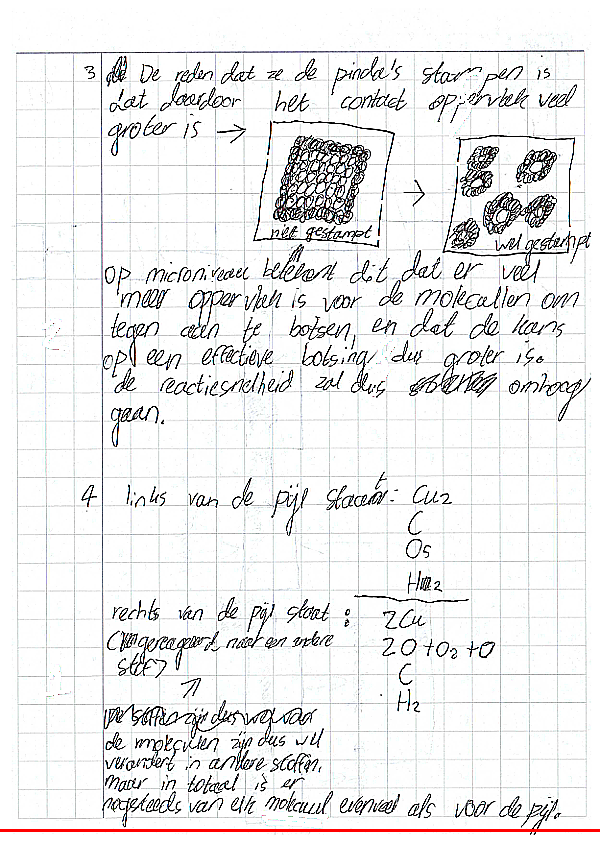 3 De reden dat ze de pinda's stampen is
dat daardoor het contact oppervlak veel
groter is →
niet gestampt
wel gestampt
op microniveau betekent dit dat er veel
meer oppervlak is voor de moleculen om
tegen aan te botsen, en dat de kans
op een effectieve botsing dus groter is.
de reactiesnelheid zal dus omhoog
gaan.
4 links van de pijl staat: Cu2
C
O5
H2
rechts van de pijl staat : 2Cu
(omgereageerd naar een andere
stof)
2O + O2 + O
C
H2
de moleculen zijn dus wel
veranderd in andere stoffen.
maar in totaal is er
nogsteeds van elk molekuul evenveel als voor de pijl.